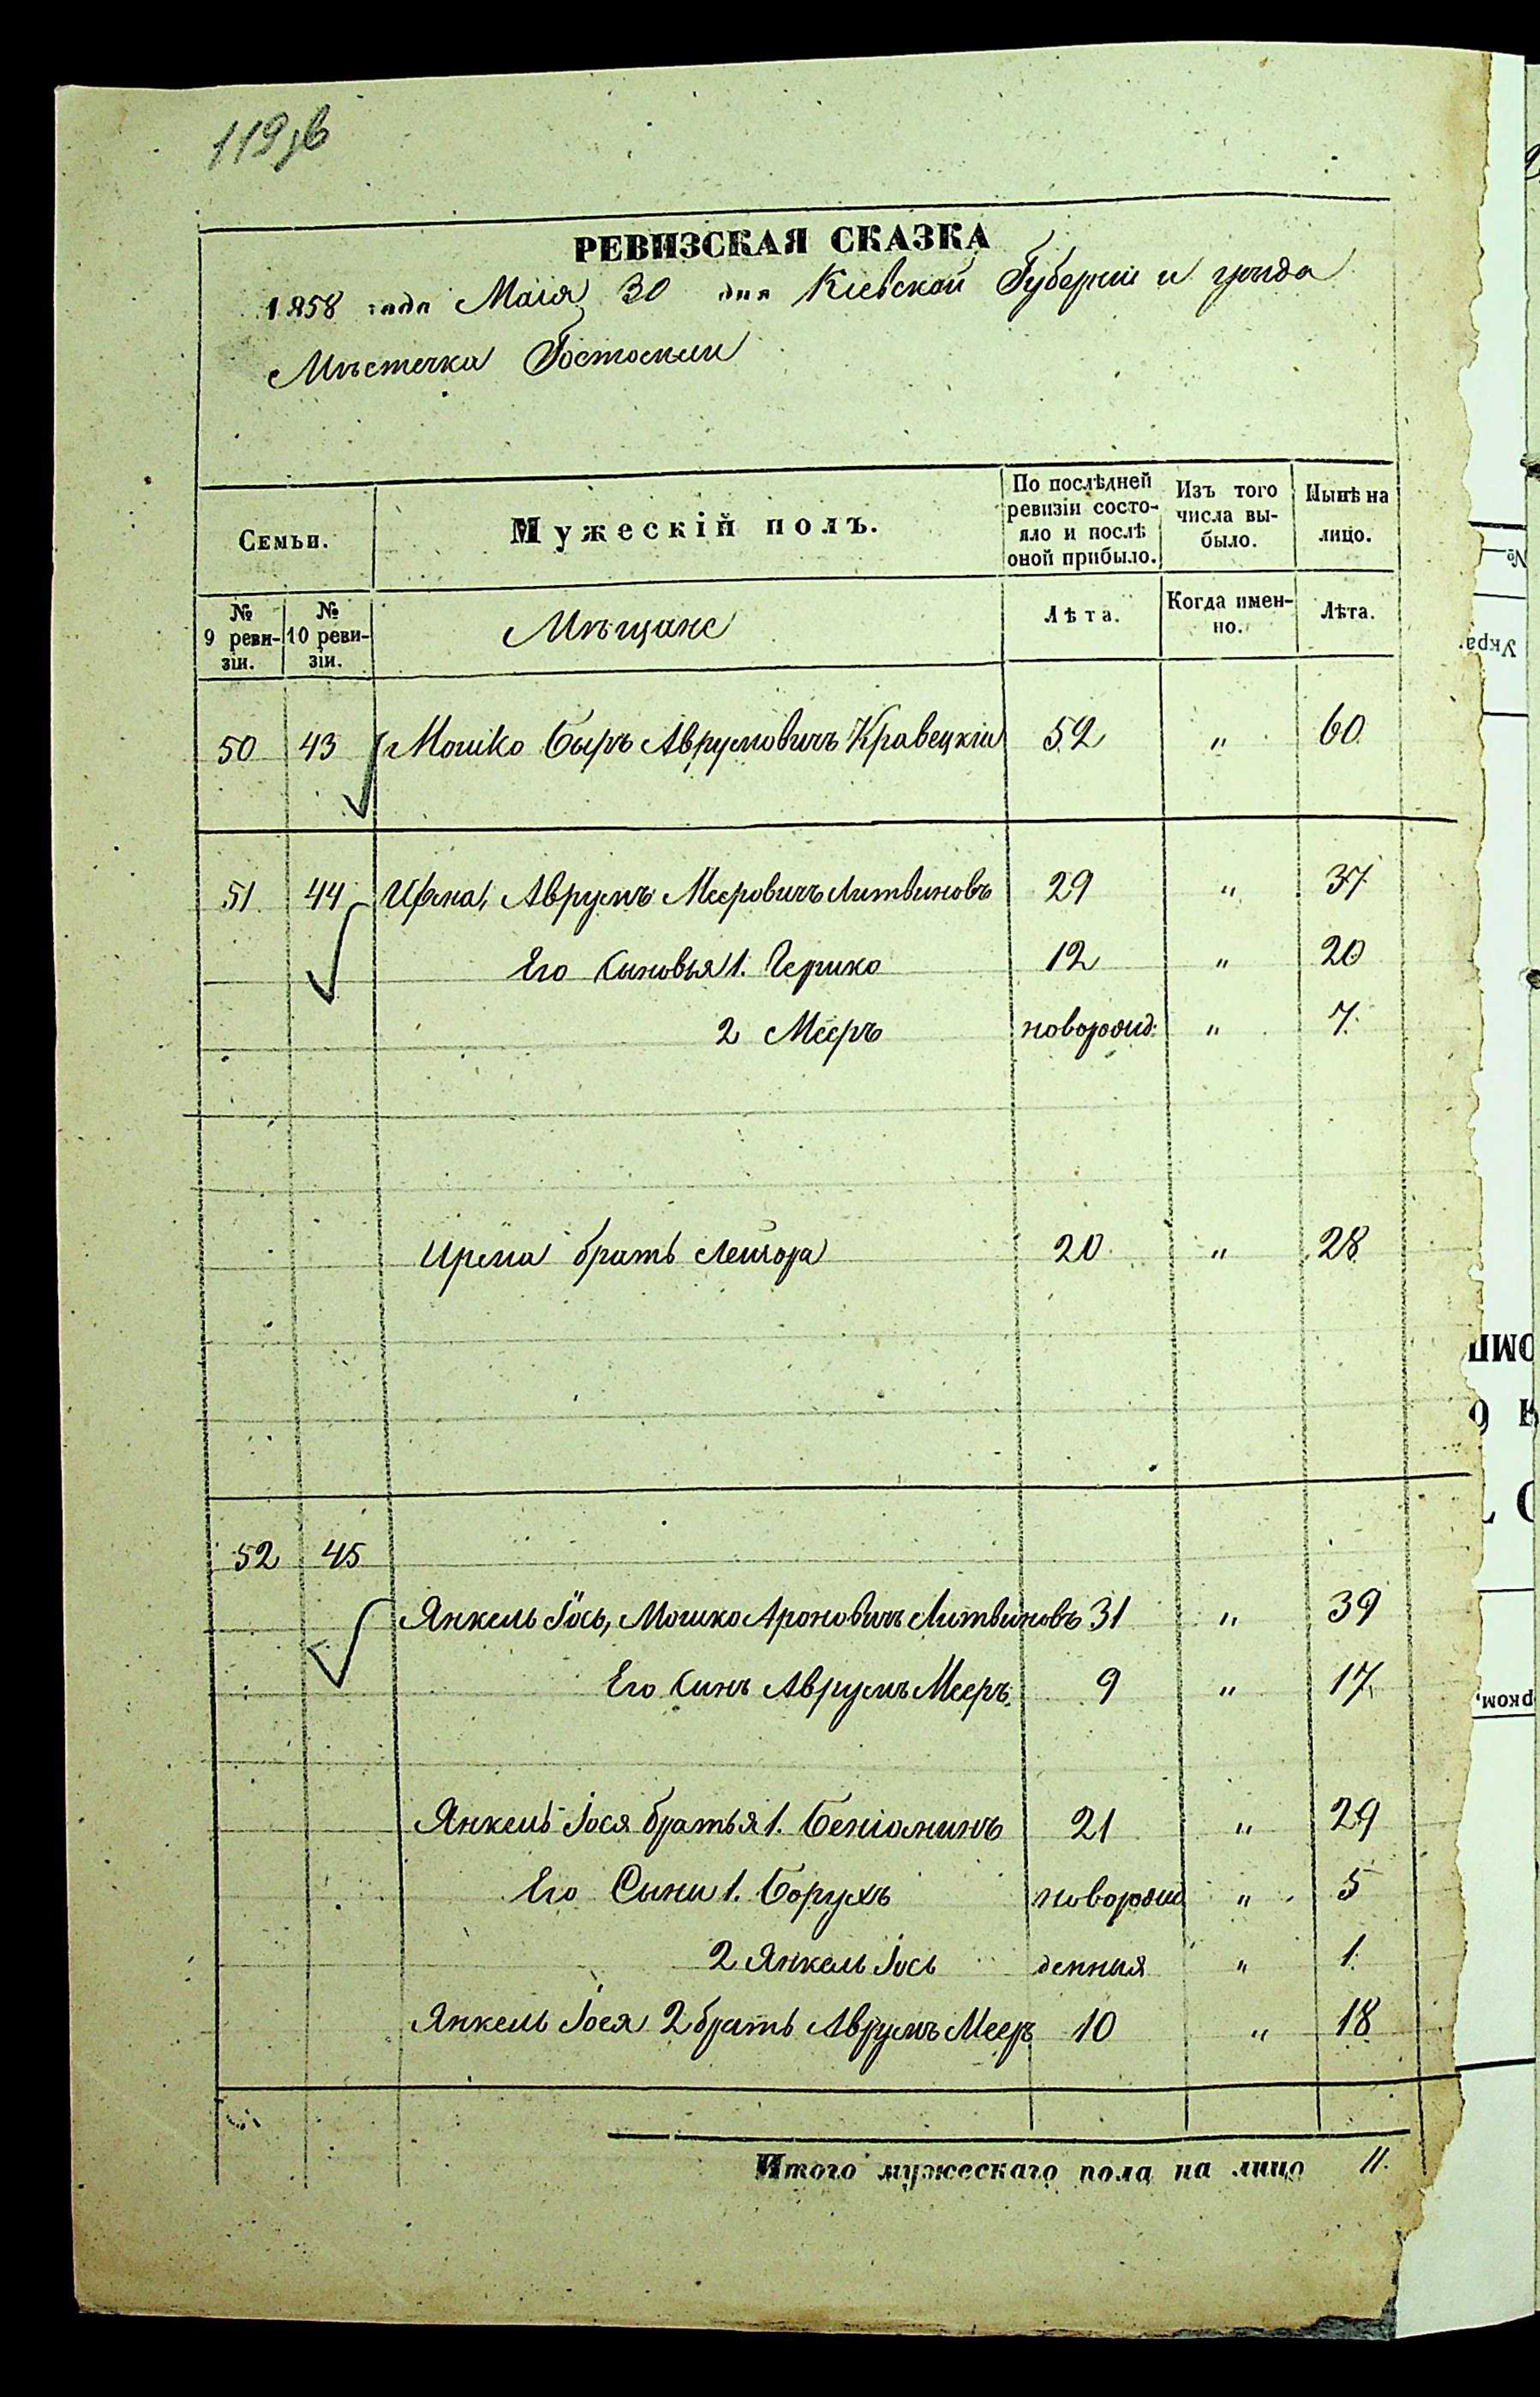 119зв
РЕВИЗСКАЯ СКАЗКА
1858 года Маія 30 дня Кіевской Губерніи и уѣзда
Мѣстечка Гостомли
Семьи.
Мужескій полъ.
По послѣдней ревизіи состояло и послѣ оной прибыло.
Изъ того числа выбыло.
Нынѣ на лицо.
№ 9 ревизіи.
№ 10 ревизіи.
Мѣщане
Лѣта.
Когда именно.
Лѣта.
50 43 Мошко Бѣръ Аврумовичъ Кравецкій 52 " 60
51 44 Аврумъ Мееровичъ Литвиновъ 29 " 37
Его Сыновья 1. Гершко 12 " 20
2 Мееръ новорожд: " 7
братъ 20 " 28
52 45
Янкель Іось, Мошко Ароновичъ Литвиновъ 31 " 39
Его Синъ Аврумъ Мееръ 9 " 17
Янкель Іося братья 1. Беніоминъ 21 " 29
Его Сини 1. Борухъ новорож " 5
2 Янкель Іось денныя " 1
Янкель Іося 2 братъ Аврумъ Мееръ 10 " 18
Итого мужескаго пола на лицо 11.
№
Укра
рком,